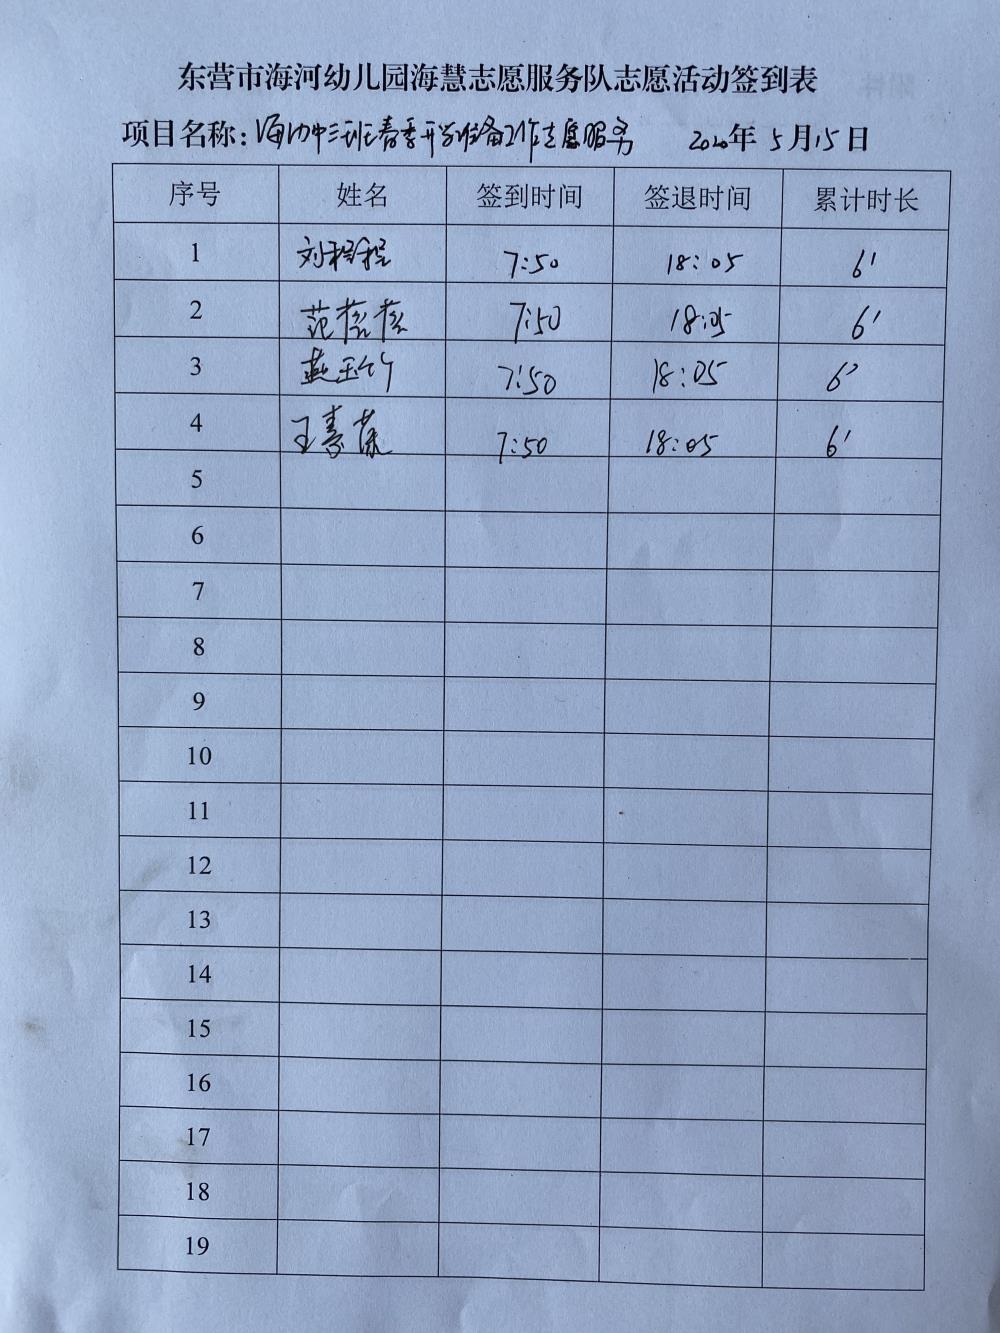 东营市海河幼儿园海慧志愿服务队志愿活动签到表
项目名称：海幼中三班春季开学准备工作志愿服务 2020年 5月15日
序号 姓名 签到时间 签退时间 累计时长
1 刘程程 7:50 18:05 6'
2 范蓓蓓 7:50 18:05 6'
3 燕玉竹 7:50 18:05 6'
4 王 7:50 18:05 6'
5
6
7
8
9
10
11
12
13
14
15
16
17
18
19